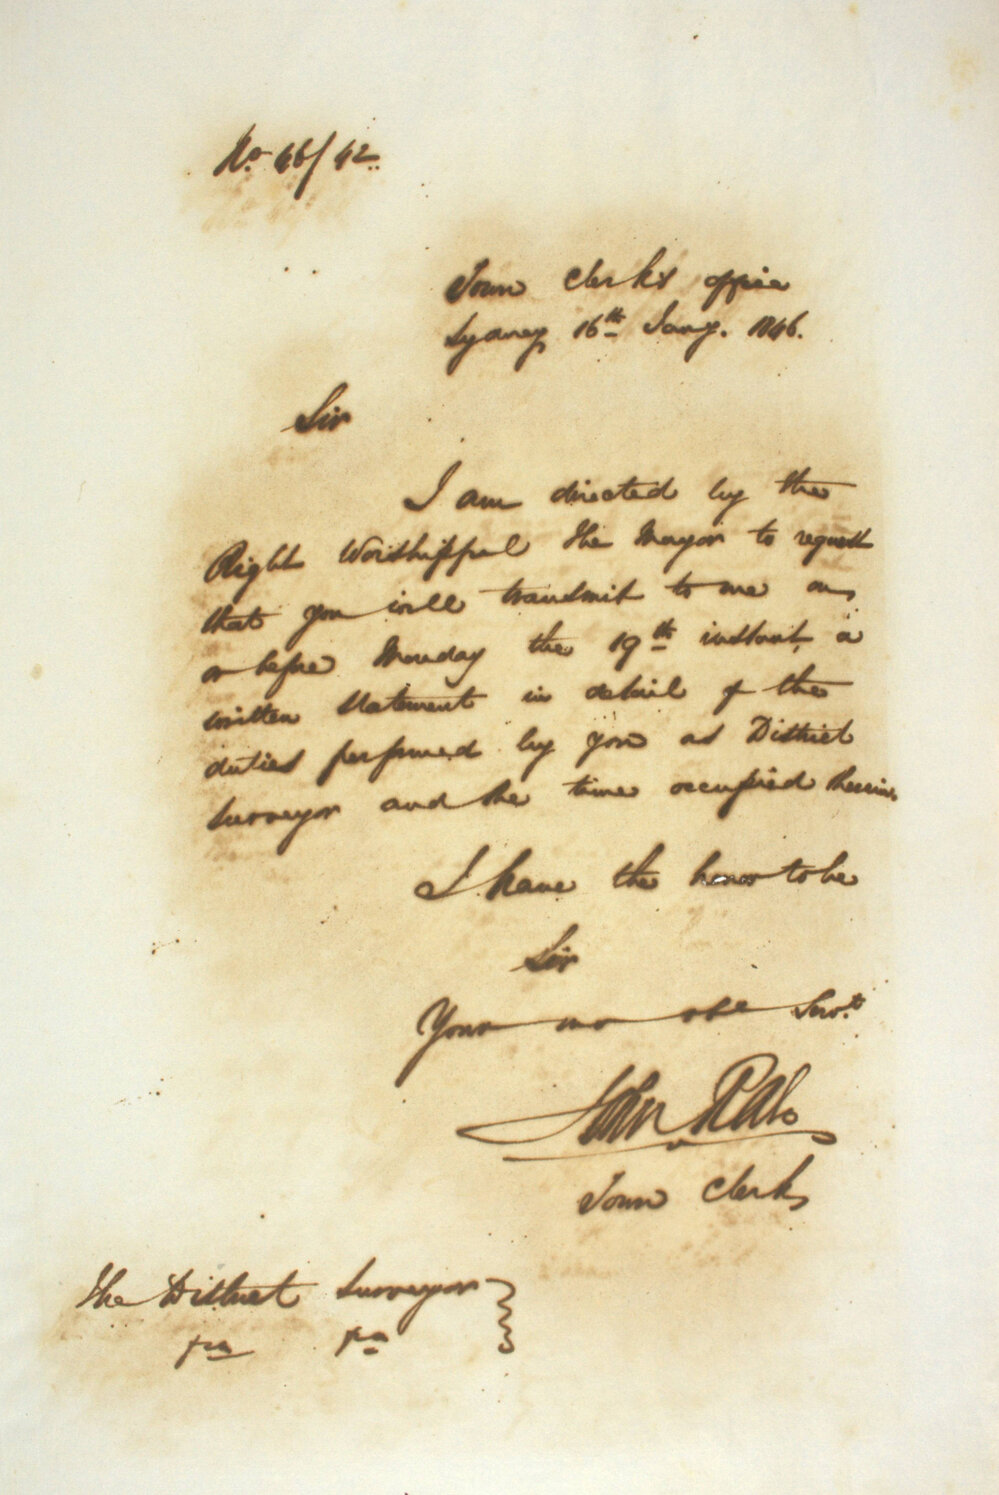 No. 46/42
Town Clerk's Office
Sydney 16th Jany. 1846.
Sir
I am directed by the
Right Worshipful the Mayor to request
that you will transmit to me on
or before Monday the 19th instant, a
written statement in detail of the
duties performed by you as District
Surveyor and the time occupied therein.
I have the honor to be
Sir
Your mo obe Servt
John Rae
Town Clerk
The District Surveyor
&a &a